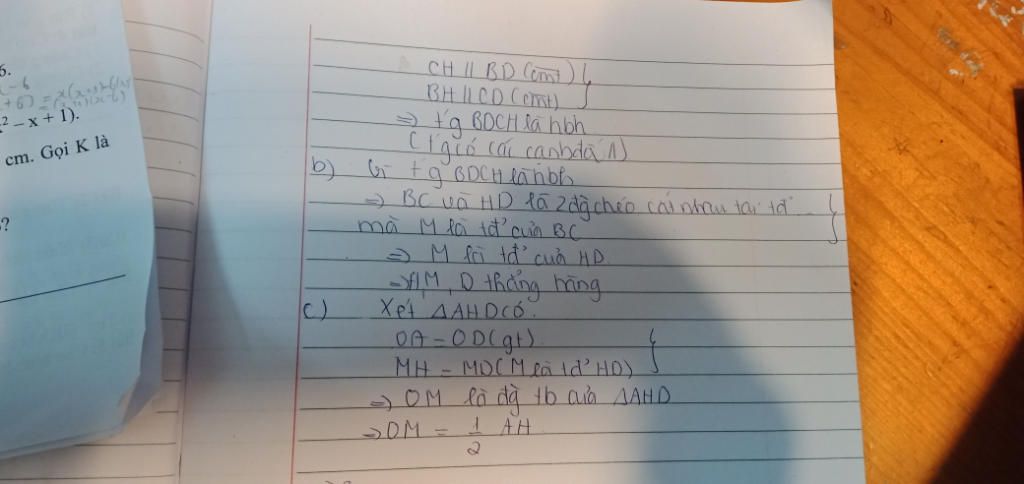 6.
x² - x + 1).
cm. Gọi K là
?
CH // BD (cmt)
BH // CD (cmt)
=> t'g BDCH là hbh
(t'g có các cạnh đđ //)
b) Vì t'g BDCH là hbh
=> BC và HD là 2 đg chéo cắt nhau tại tđ'
mà M là tđ' của BC
=> M là tđ' của HD
=> H, M, D thẳng hàng
c) Xét ΔAHD có.
OA = OD (gt)
MH = MD (M là tđ' HD)
=> OM là đg tb của ΔAHD
=> OM = 1/2 AH